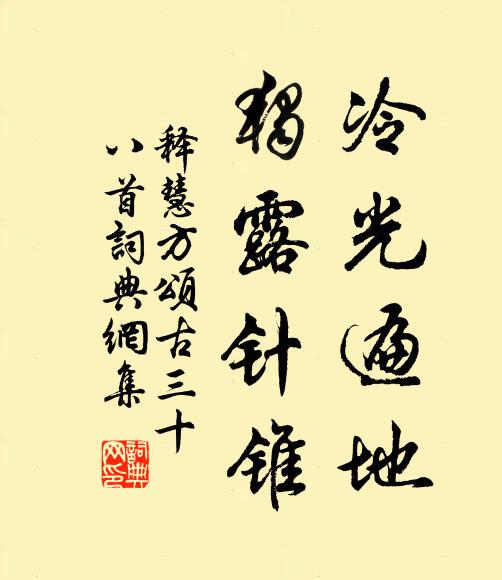 冷光遍地
独露针锥
释慧方颂古三十
八首詞典網集
詞典網印